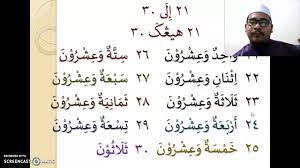 ٢١ إِلَى ٣٠
٢١ هيڠݢ ٣٠
٢١ وَاحِدٌ وَعِشْرُوْنَ
٢٢ اِثْنَانِ وَعِشْرُوْنَ
٢٣ ثَلَاثَةٌ وَعِشْرُوْنَ
٢٤ أَرْبَعَةٌ وَعِشْرُوْنَ
٢٥ خَمْسَةٌ وَعِشْرُوْنَ
٢٦ سِتَّةٌ وَعِشْرُوْنَ
٢٧ سَبْعَةٌ وَعِشْرُوْنَ
٢٨ ثَمَانِيَةٌ وَعِشْرُوْنَ
٢٩ تِسْعَةٌ وَعِشْرُوْنَ
٣٠ ثَلَاثُوْنَ
RECORDED WITH
SCREENCAST